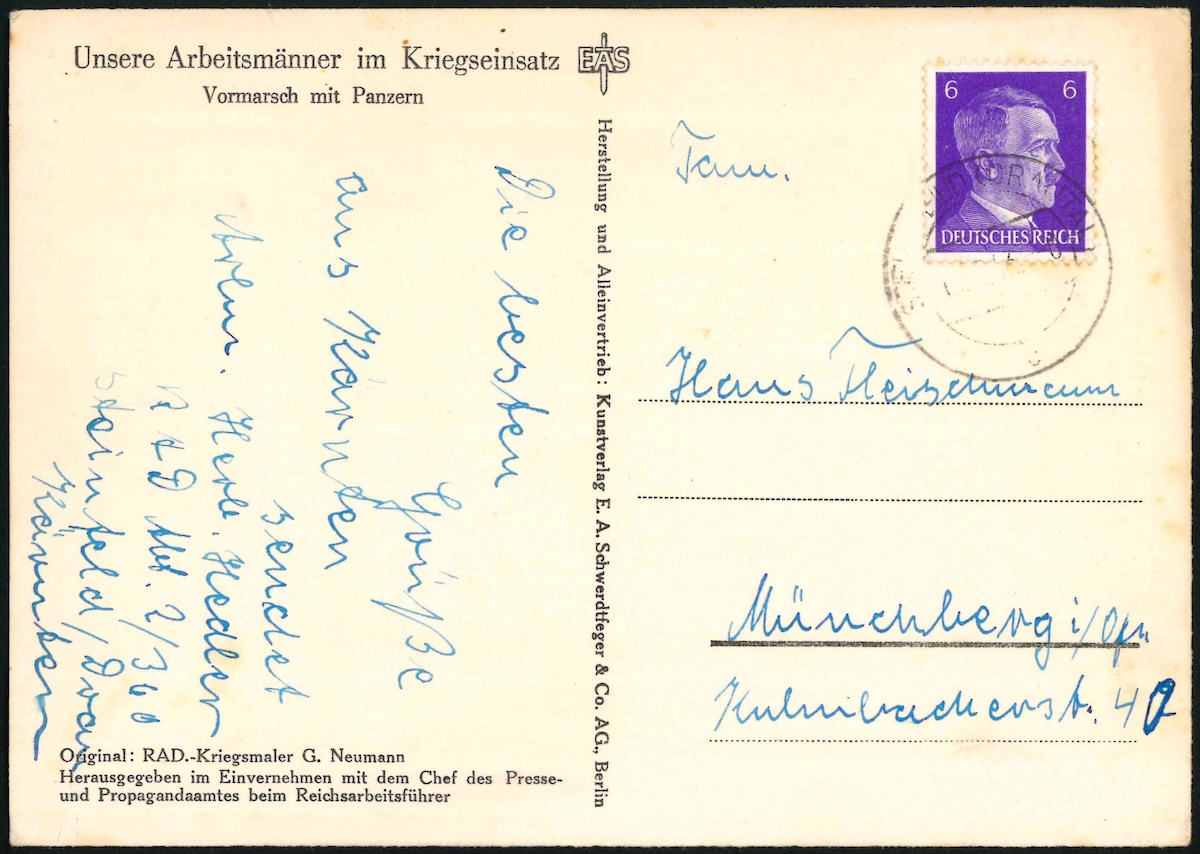 Unsere Arbeitsmänner im Kriegseinsatz
Vormarsch mit Panzern
EAS
Die besten
Grüße
aus Kärnten
sendet
Arbm. Herb. Hedler
RAD Abt. 2/360
Steinfeld/Drau
Kärnten
Original: RAD.-Kriegsmaler G. Neumann
Herausgegeben im Einvernehmen mit dem Chef des Presse-
und Propagandaamtes beim Reichsarbeitsführer
Herstellung und Alleinvertrieb: Kunstverlag E. A. Schwerdtfeger & Co. AG., Berlin
6 6
DEUTSCHES REICH
Fam.
Hans Fleischmann
Münchberg i/Ofr
Kulmbacherst. 42